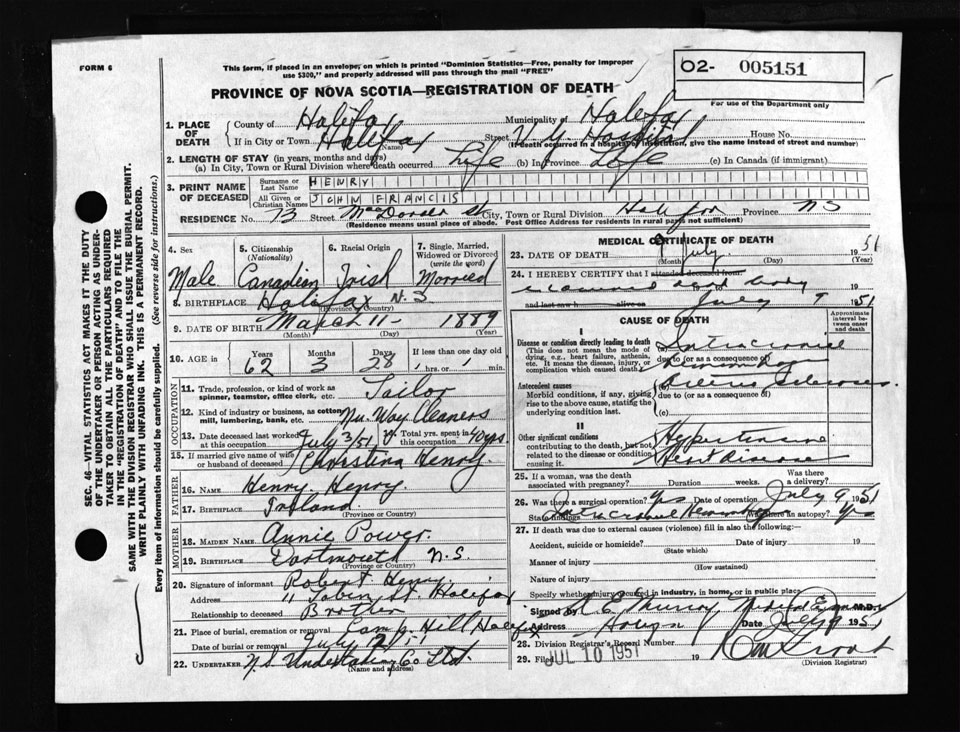 FORM 6
This form, if placed in an envelope, on which is printed "Dominion Statistics—Free, penalty for improper
use $300," and properly addressed will pass through the mail "FREE"
02- 005151
For use of the Department only
PROVINCE OF NOVA SCOTIA—REGISTRATION OF DEATH
1. PLACE OF DEATH
County of Halifax Municipality of Halifax
If in City or Town Halifax (Name) Street V. G. Hospital House No.
(If death occurred in a hospital or institution, give the name instead of street and number)
2. LENGTH OF STAY (in years, months and days)
(a) In City, Town or Rural Division where death occurred Life (b) in Province Life (c) In Canada (if immigrant)
3. PRINT NAME OF DECEASED
Surname or Last Name HENRY
All Given or Christian Names JOHN FRANCIS
RESIDENCE No. 73 Street St City, Town or Rural Division Halifax Province NS
(Residence means usual place of abode. Post Office Address for residents in rural parts not sufficient)
4. Sex Male
5. Citizenship (Nationality) Canadian
6. Racial Origin Irish
7. Single, Married, Widowed or Divorced (write the word) Married
8. BIRTHPLACE Halifax N. S
(Province or Country)
9. DATE OF BIRTH March 11 1889
(Month) (Day) (Year)
10. AGE in Years 62 Months 3 Days 28 If less than one day old hrs. or min.
OCCUPATION
11. Trade, profession, or kind of work as spinner, teamster, office clerk, etc. Tailor
12. Kind of industry or business, as cotton mill, lumbering, bank, etc. Nu-Way Cleaners
13. Date deceased last worked at this occupation July 3/51 Total yrs. spent in this occupation 40 yrs
15. If married give name of wife or husband of deceased Christina Henry.
FATHER
16. NAME Henry Henry.
17. BIRTHPLACE Ireland
(Province or Country)
MOTHER
18. MAIDEN NAME Annie Power.
19. BIRTHPLACE Dartmouth N.S.
(Province or Country)
20. Signature of informant Robert Henry
Address 11 Tobin St. Halifax
Relationship to deceased Brother
21. Place of burial, cremation or removal Camp Hill Halifax
Date of burial or removal July 2
22. UNDERTAKER N.S. Undertaking Co Ltd.
(Name and address)
MEDICAL CERTIFICATE OF DEATH
23. DATE OF DEATH July 9 1951
(Month) (Day) (Year)
24. I HEREBY CERTIFY that I attended deceased from
examined dead body
and last saw h alive on July 9 1951
CAUSE OF DEATH
Approximate interval between onset and death
I
Disease or condition directly leading to death
(This does not mean the mode of dying, e.g., heart failure, asthenia, etc. It means the disease, injury, or complication which caused death.)
(a) Intracranial
due to (or as a consequence of) Hemorrhage
Antecedent causes
Morbid conditions, if any, giving rise to the above cause, stating the underlying condition last.
(b) Arterio Sclerosis.
due to (or as a consequence of)
(c)
II
Other significant conditions
contributing to the death, but not related to the disease or condition causing it.
Hypertensive
Heart disease
25. If a woman, was the death associated with pregnancy? Duration weeks. Was there a delivery?
26. Was there a surgical operation? Yes Date of operation July 9 1951
State findings Intracranial Hemorrhage Was there an autopsy? Yes
27. If death was due to external causes (violence) fill in also the following:—
Accident, suicide or homicide? Date of injury 19
(State which)
Manner of injury
(How sustained)
Nature of injury
Specify whether injury occurred in industry, in home, or in public place
Signed by Murray Medical Examiner M.D.
Address Date July 9 1951
28. Division Registrar's Record Number
29. Filed JUL 10 1951
(Division Registrar)
SEC. 46—VITAL STATISTICS ACT MAKES IT THE DUTY
OF THE UNDERTAKER OR PERSON ACTING AS UNDER-
TAKER TO OBTAIN ALL THE PARTICULARS REQUIRED
IN THE "REGISTRATION OF DEATH" AND TO FILE THE
SAME WITH THE DIVISION REGISTRAR WHO SHALL ISSUE THE BURIAL PERMIT.
WRITE PLAINLY WITH UNFADING INK. THIS IS A PERMANENT RECORD.
Every item of information should be carefully supplied. (See reverse side for instructions.)